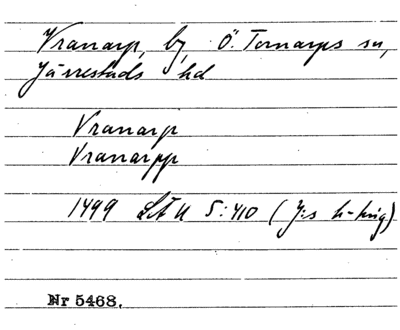 Vranarp, by, Ö. Tomarps sn,
Järrestads hd
Vranarp
Vranarpp
1499 LÄU 5:410 (J:s h-
Nr 5468.